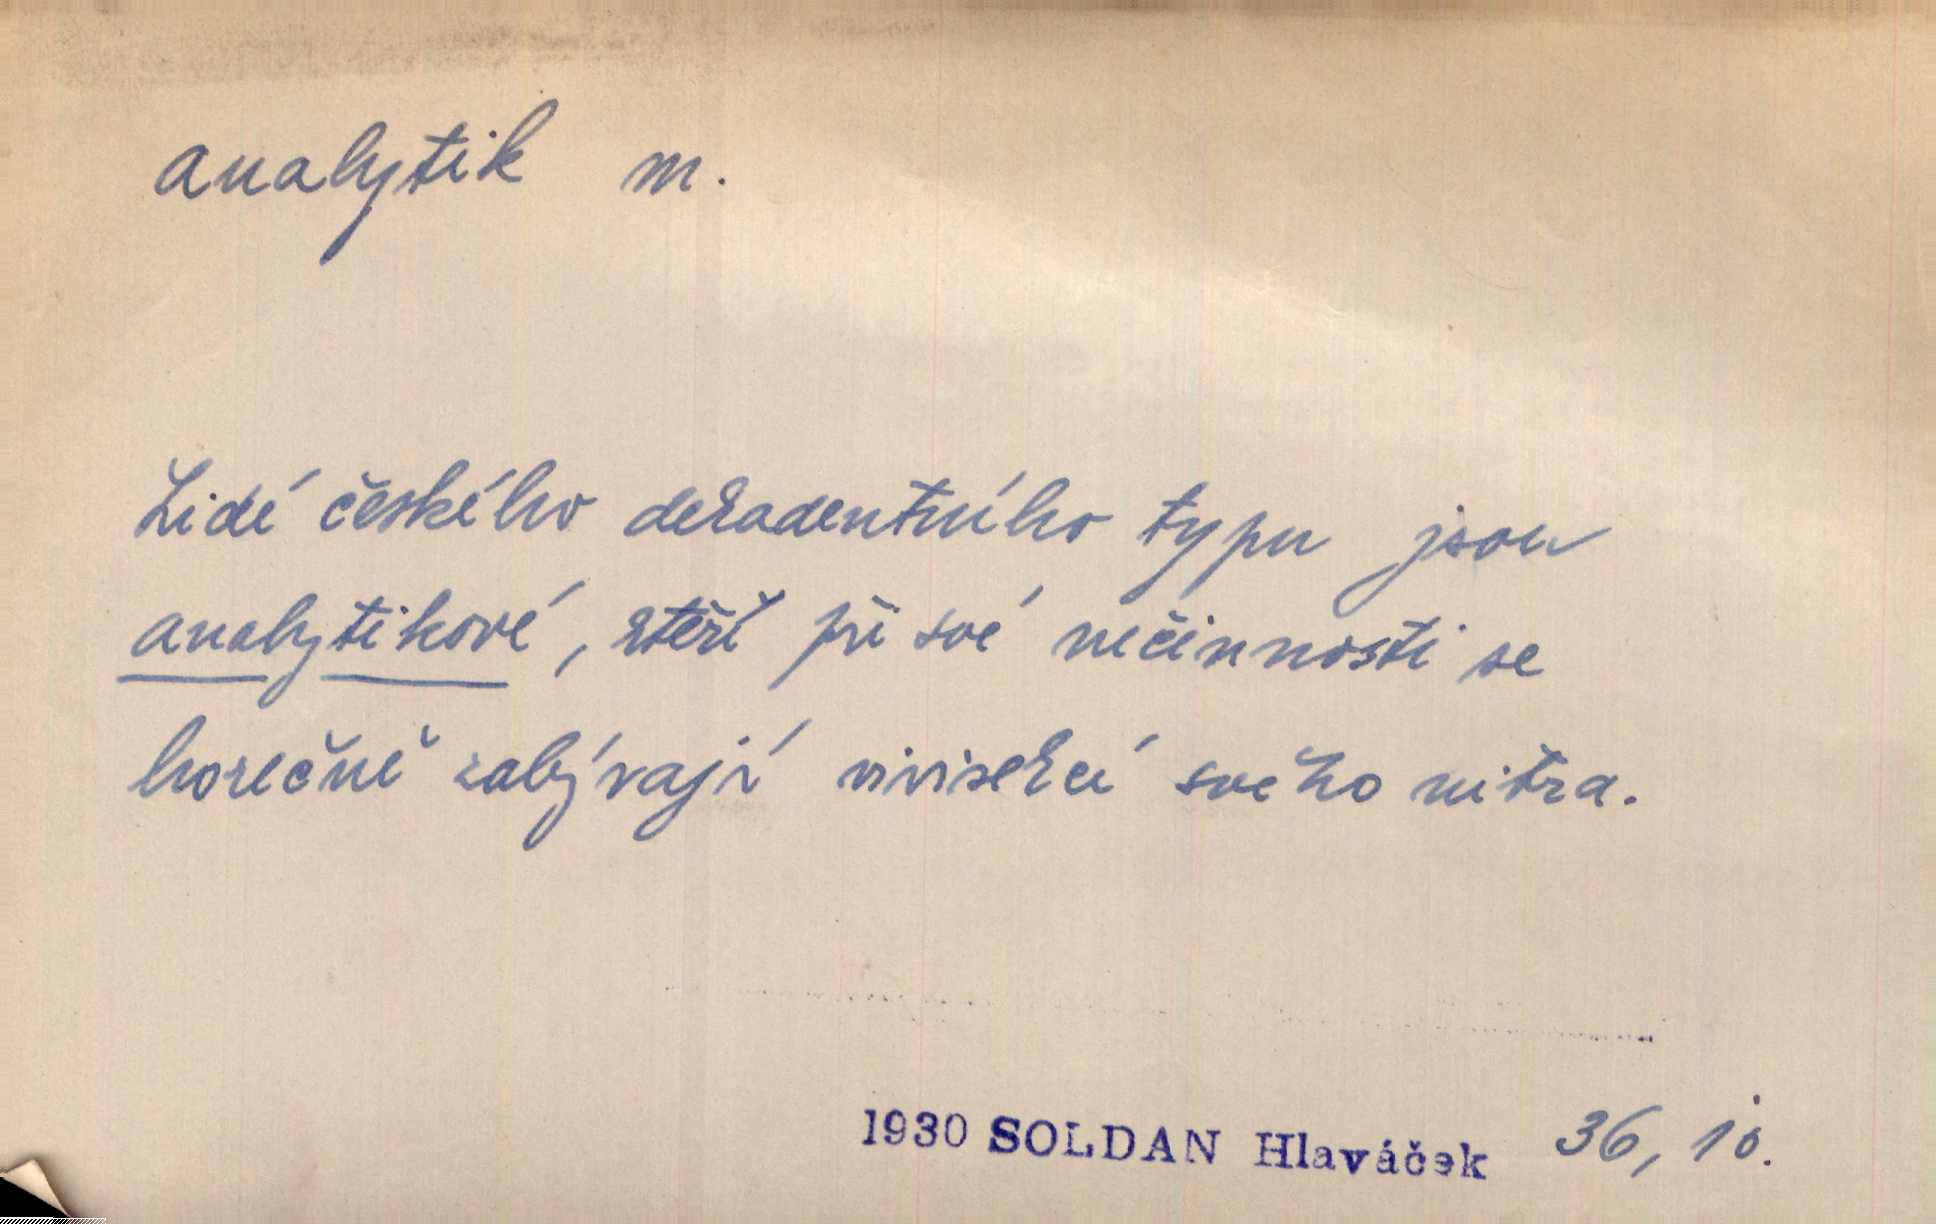 analytik m.
Lidé českého dekadentního typu jsou
analytikové, kteří při své nečinnosti se
horečně zabývají vivisekcí svého nitra.
1930 SOLDAN Hlaváček 36,